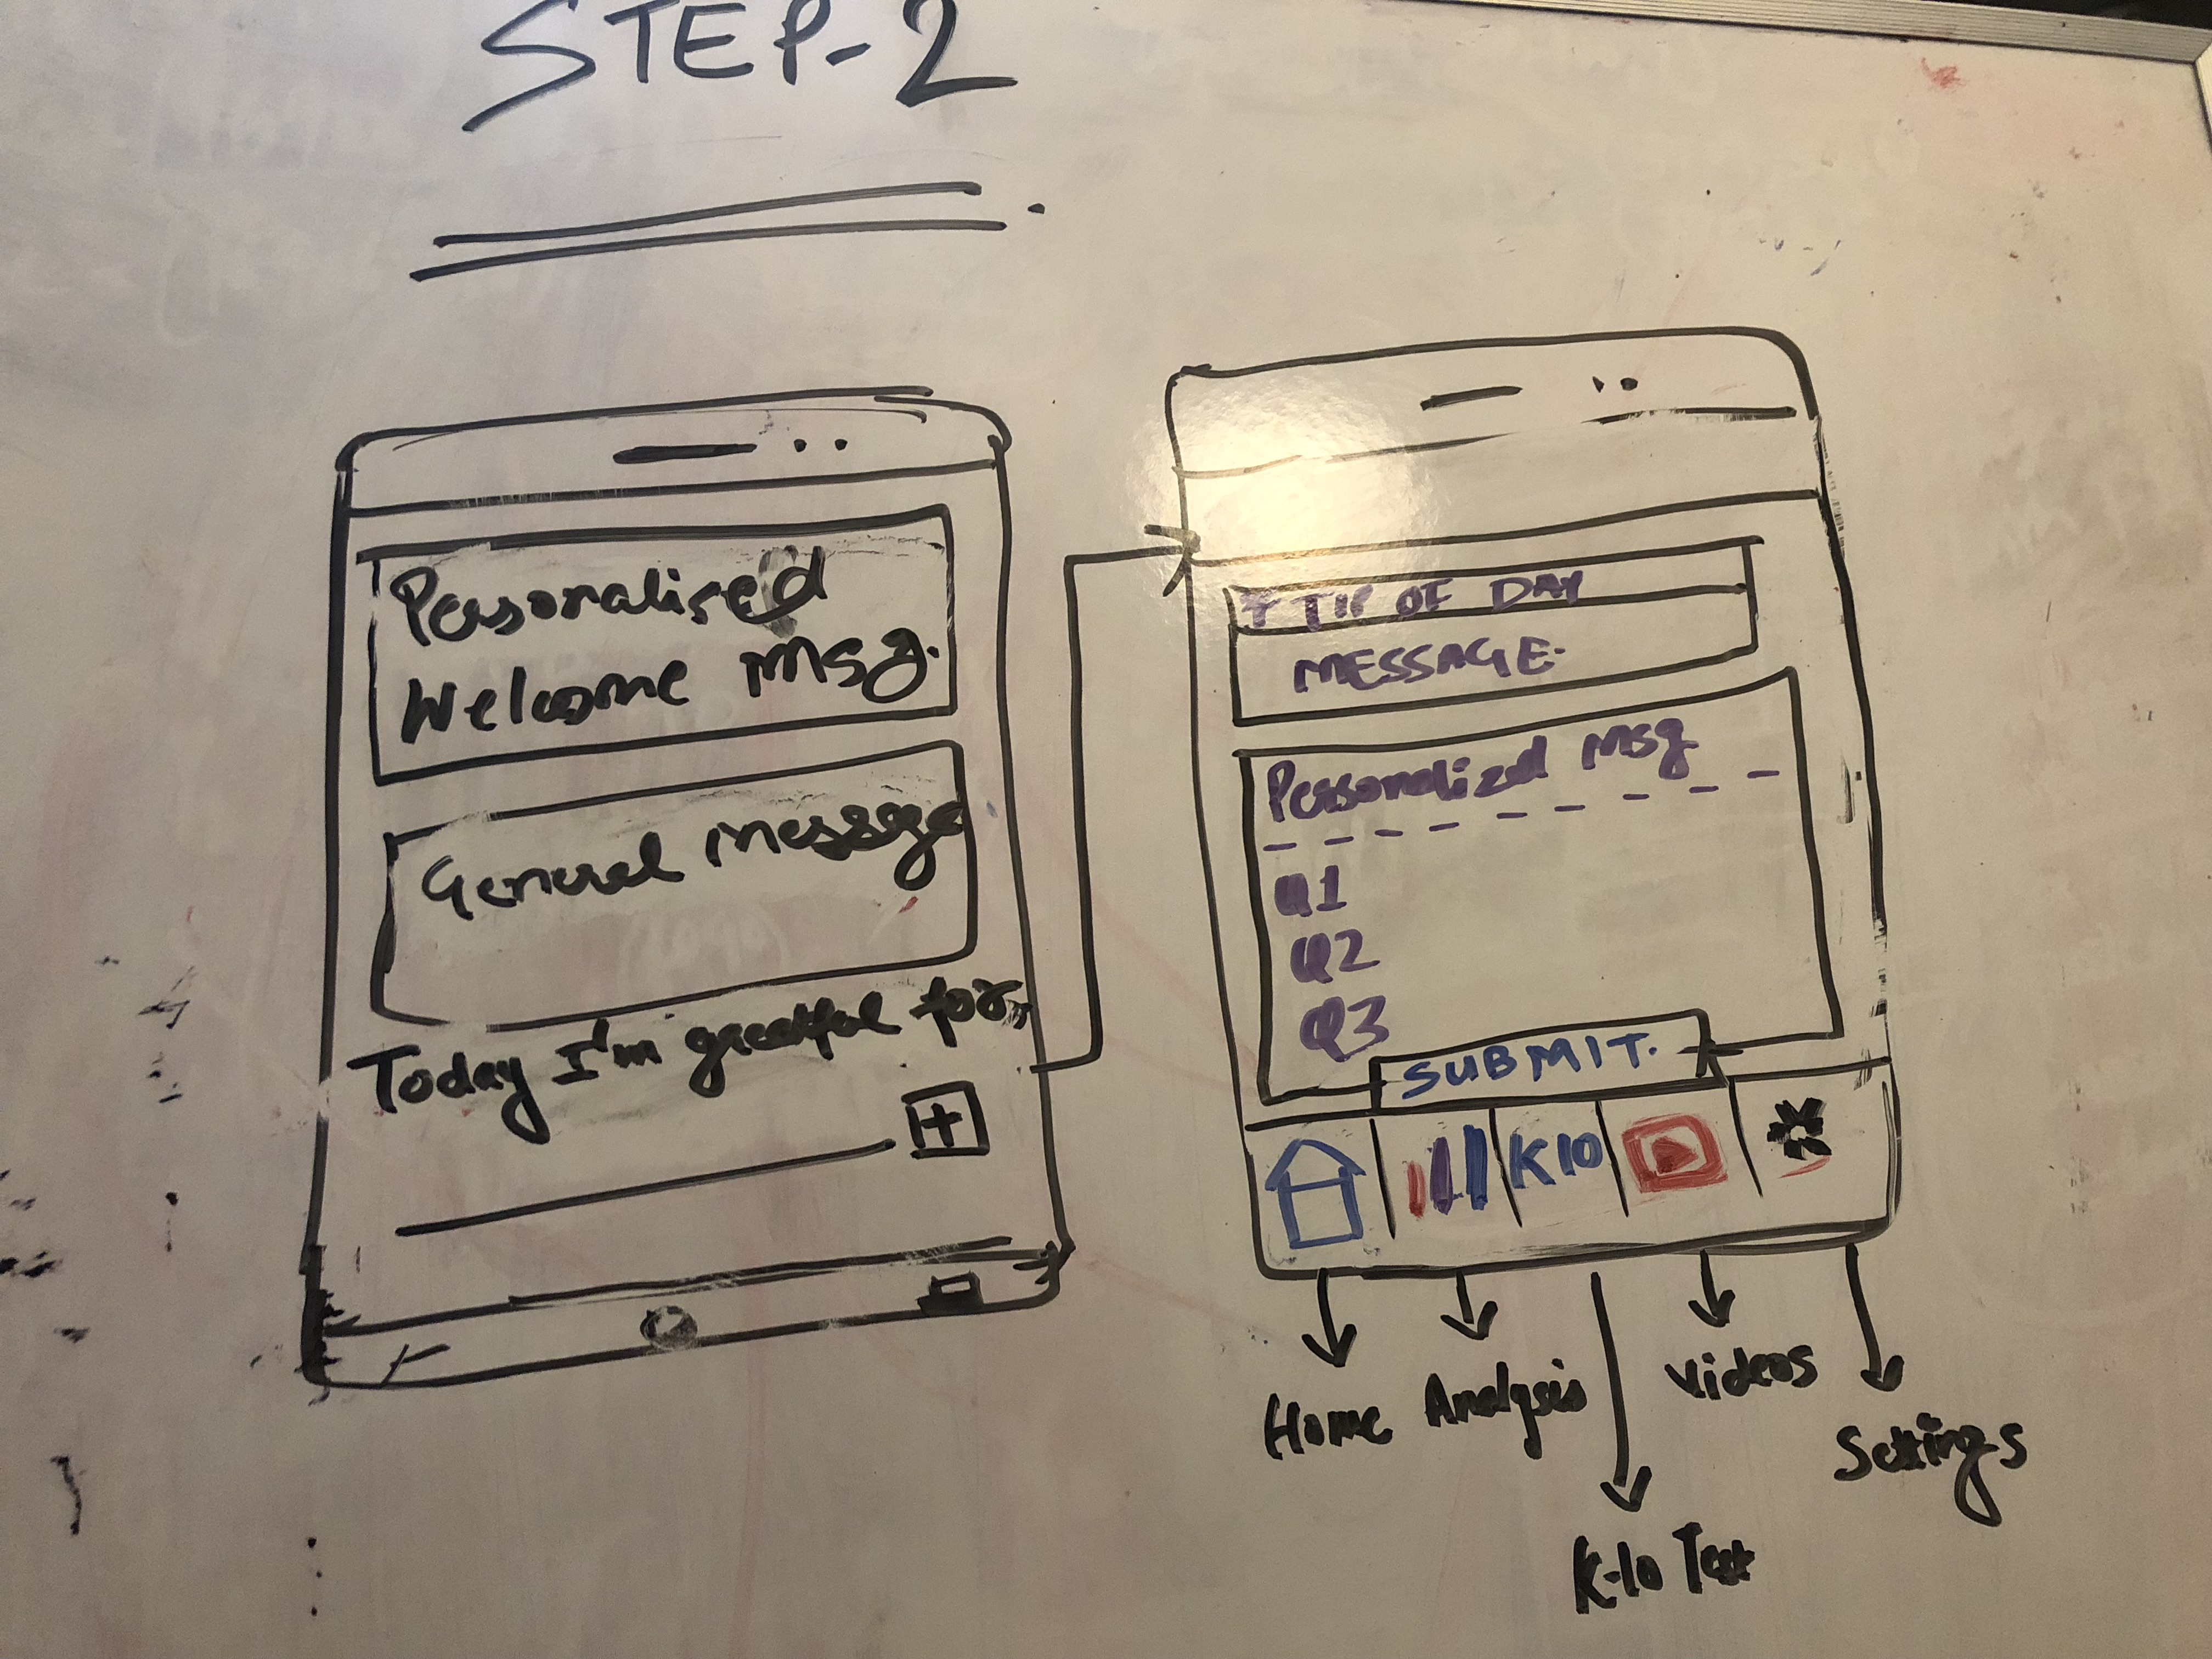 STEP-2
Personalised
Welcome Msg.
General Message
Today I'm greatful for,
+
TIP OF DAY
MESSAGE.
Personalized Msg
Q1
Q2
Q3
SUBMIT.
K10
Home
Analysis
K-10 Test
Videos
Settings